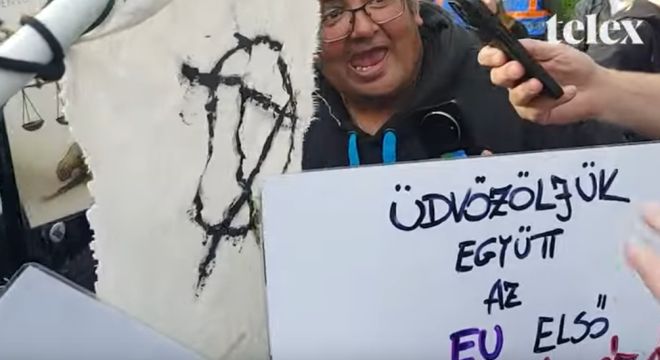 telex
ÜDVÖZÖLJÜK
EGYÜTT
AZ
EU ELSŐ